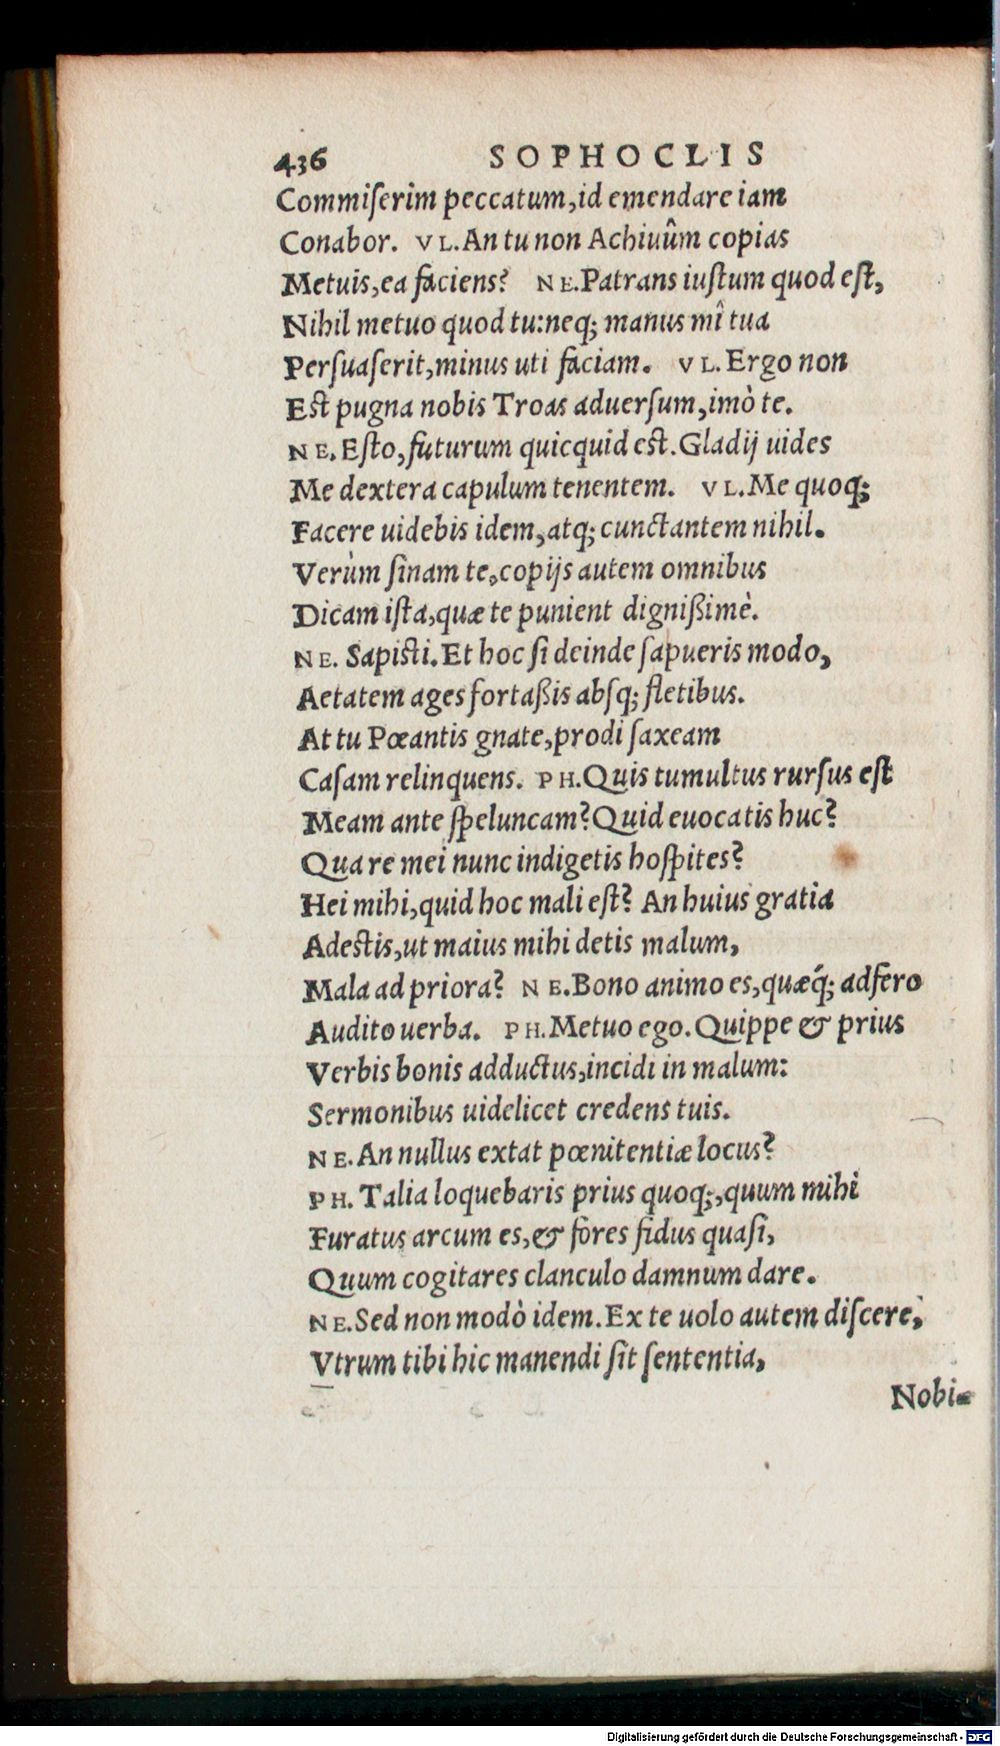 436 SOPHOCLIS
Commiſerim peccatum,id emendare iam
Conabor. VL.An tu non Achiuûm copias
Metuis,ea faciens? NE.Patrans iuſtum quod eſt,
Nihil metuo quod tu:neq; manus mî tua
Perſuaſerit,minus uti faciam. VL.Ergo non
Eſt pugna nobis Troas aduerſum,imò te.
NE.Eſto,futurum quicquid eſt.Gladij uides
Me dextera capulum tenentem. VL.Me quoq;
Facere uidebis idem,atq; cunctantem nihil.
Verùm ſinam te,copijs autem omnibus
Dicam iſta,quæ te punient dignißimè.
NE. Sapiſti.Et hoc ſi deinde ſapueris modo,
Aetatem ages fortaßis abſq; fletibus.
At tu Pœantis gnate,prodi ſaxeam
Caſam relinquens. PH.Quis tumultus rurſus eſt
Meam ante ſpeluncam?Quid euocatis huc?
Quare mei nunc indigetis hoſpites?
Hei mihi,quid hoc mali eſt? An huius gratia
Adeſtis,ut maius mihi detis malum,
Mala ad priora? NE.Bono animo es,quæq́; adfero
Audito uerba. PH.Metuo ego.Quippe & prius
Verbis bonis adductus,incidi in malum:
Sermonibus uidelicet credens tuis.
NE.An nullus extat pœnitentiæ locus?
PH. Talia loquebaris prius quoq;,quum mihi
Furatus arcum es,& fores fidus quaſi,
Quum cogitares clanculo damnum dare.
NE.Sed non modò idem.Ex te uolo autem diſcere,
Vtrum tibi hic manendi ſit ſententia,
Nobi-
Digitalisierung gefördert durch die Deutsche Forschungsgemeinschaft - DFG